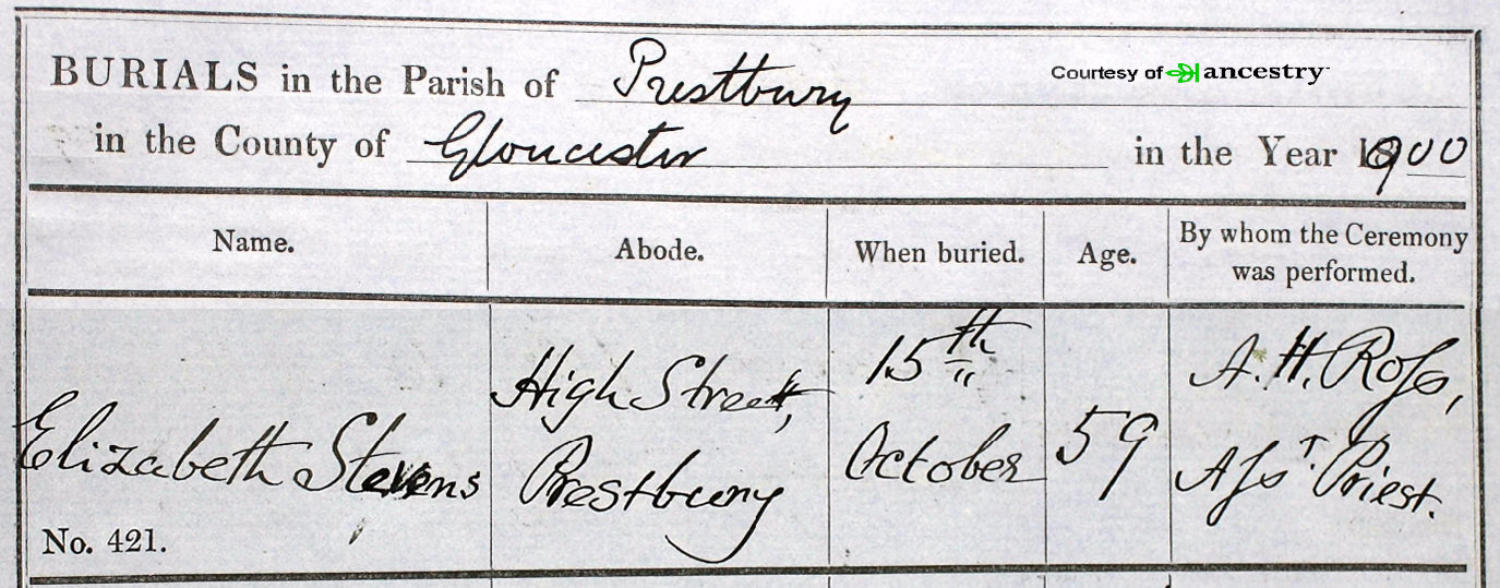 BURIALS in the Parish of Prestbury
Courtesy of ancestry
in the County of Gloucester in the Year 1900
Name. Abode. When buried. Age. By whom the Ceremony was performed.
Elizabeth Stevens
No. 421.
High Street,
Prestbury
15th
October
59
A. H. Roſs,
AſsT. Priest.